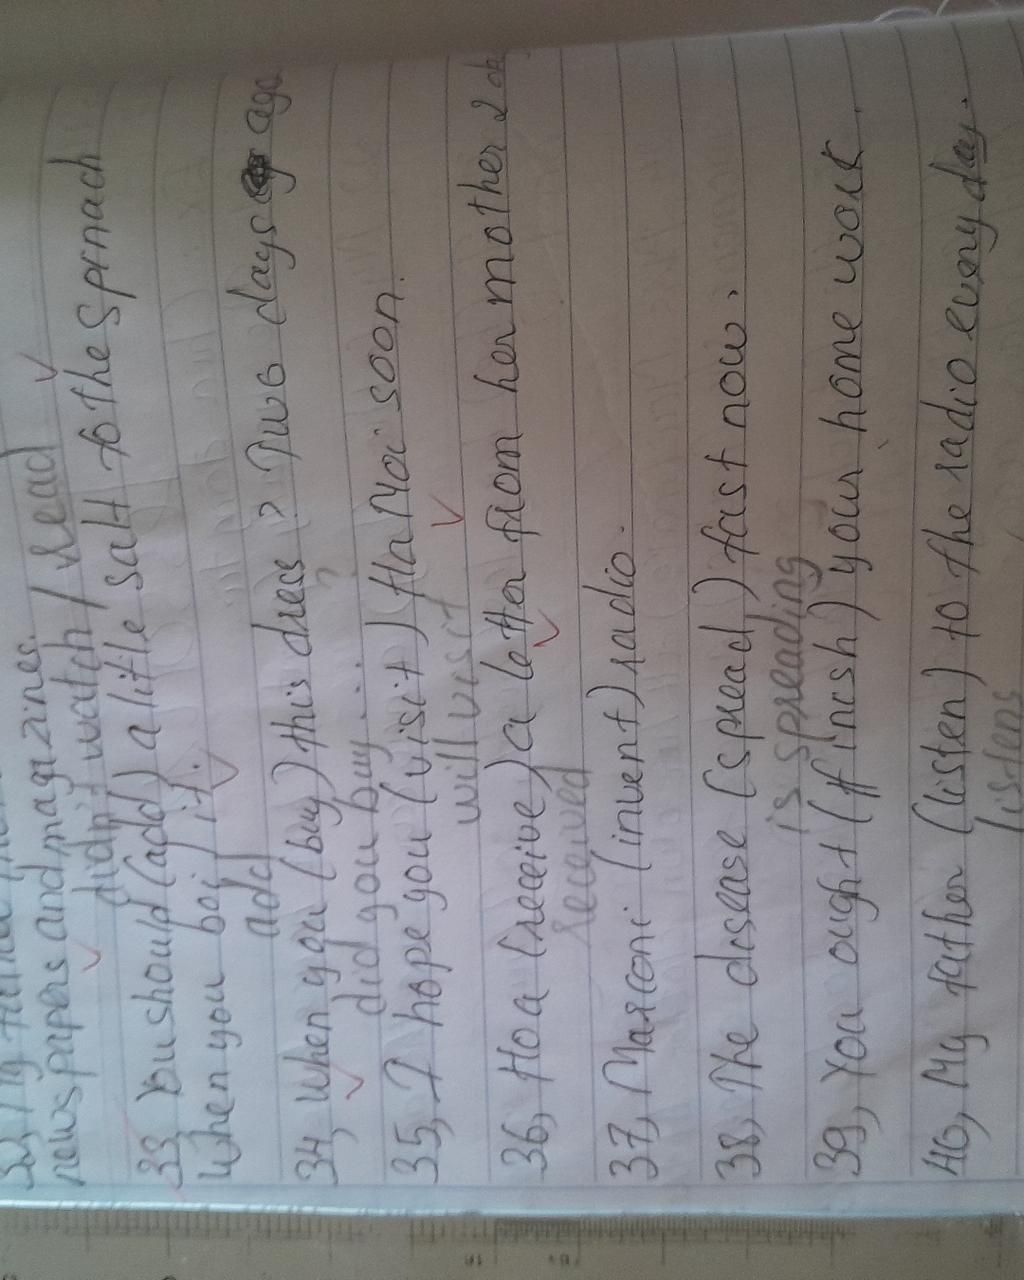 newspapers and magazines.
didn't watch / read
33, You should (add) a little salt to the spinach
when you boi it.
add
34, When you (buy) this dress? Two days ago
did you buy ... ?
35, I hope you (visit) Ha Noi soon.
will visit
36, Hoa (receive) a letter from her mother 2
received
37, Marconi (invent) radio.
38, The disease (spread) fast now.
is spreading
39, You ought (finish) your home work.
40, My father (listen) to the radio everyday.
listens